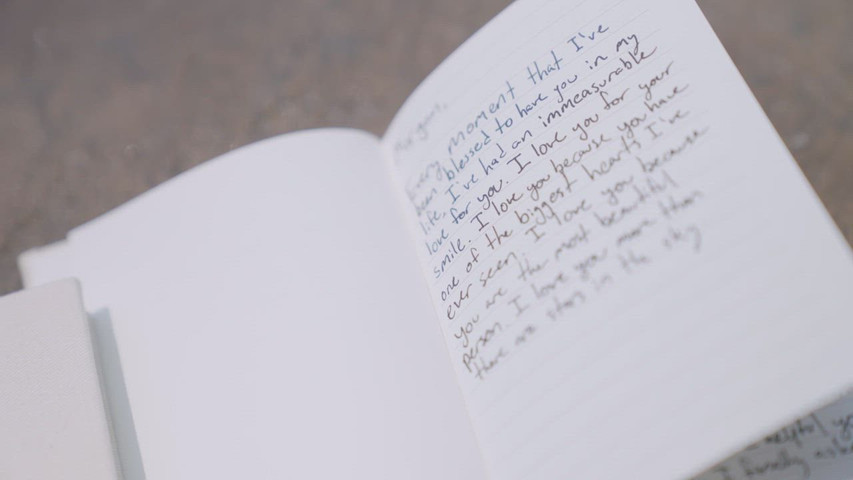 Morgan,
Every moment that I've
been blessed to have you in my
life, I've had an immeasurable
love for you. I love you for your
smile. I love you because you have
one of the biggest hearts I've
ever seen. I love you because
you are the most beautiful
person. I love you more than
there are stars in the sky
helpful
I finally